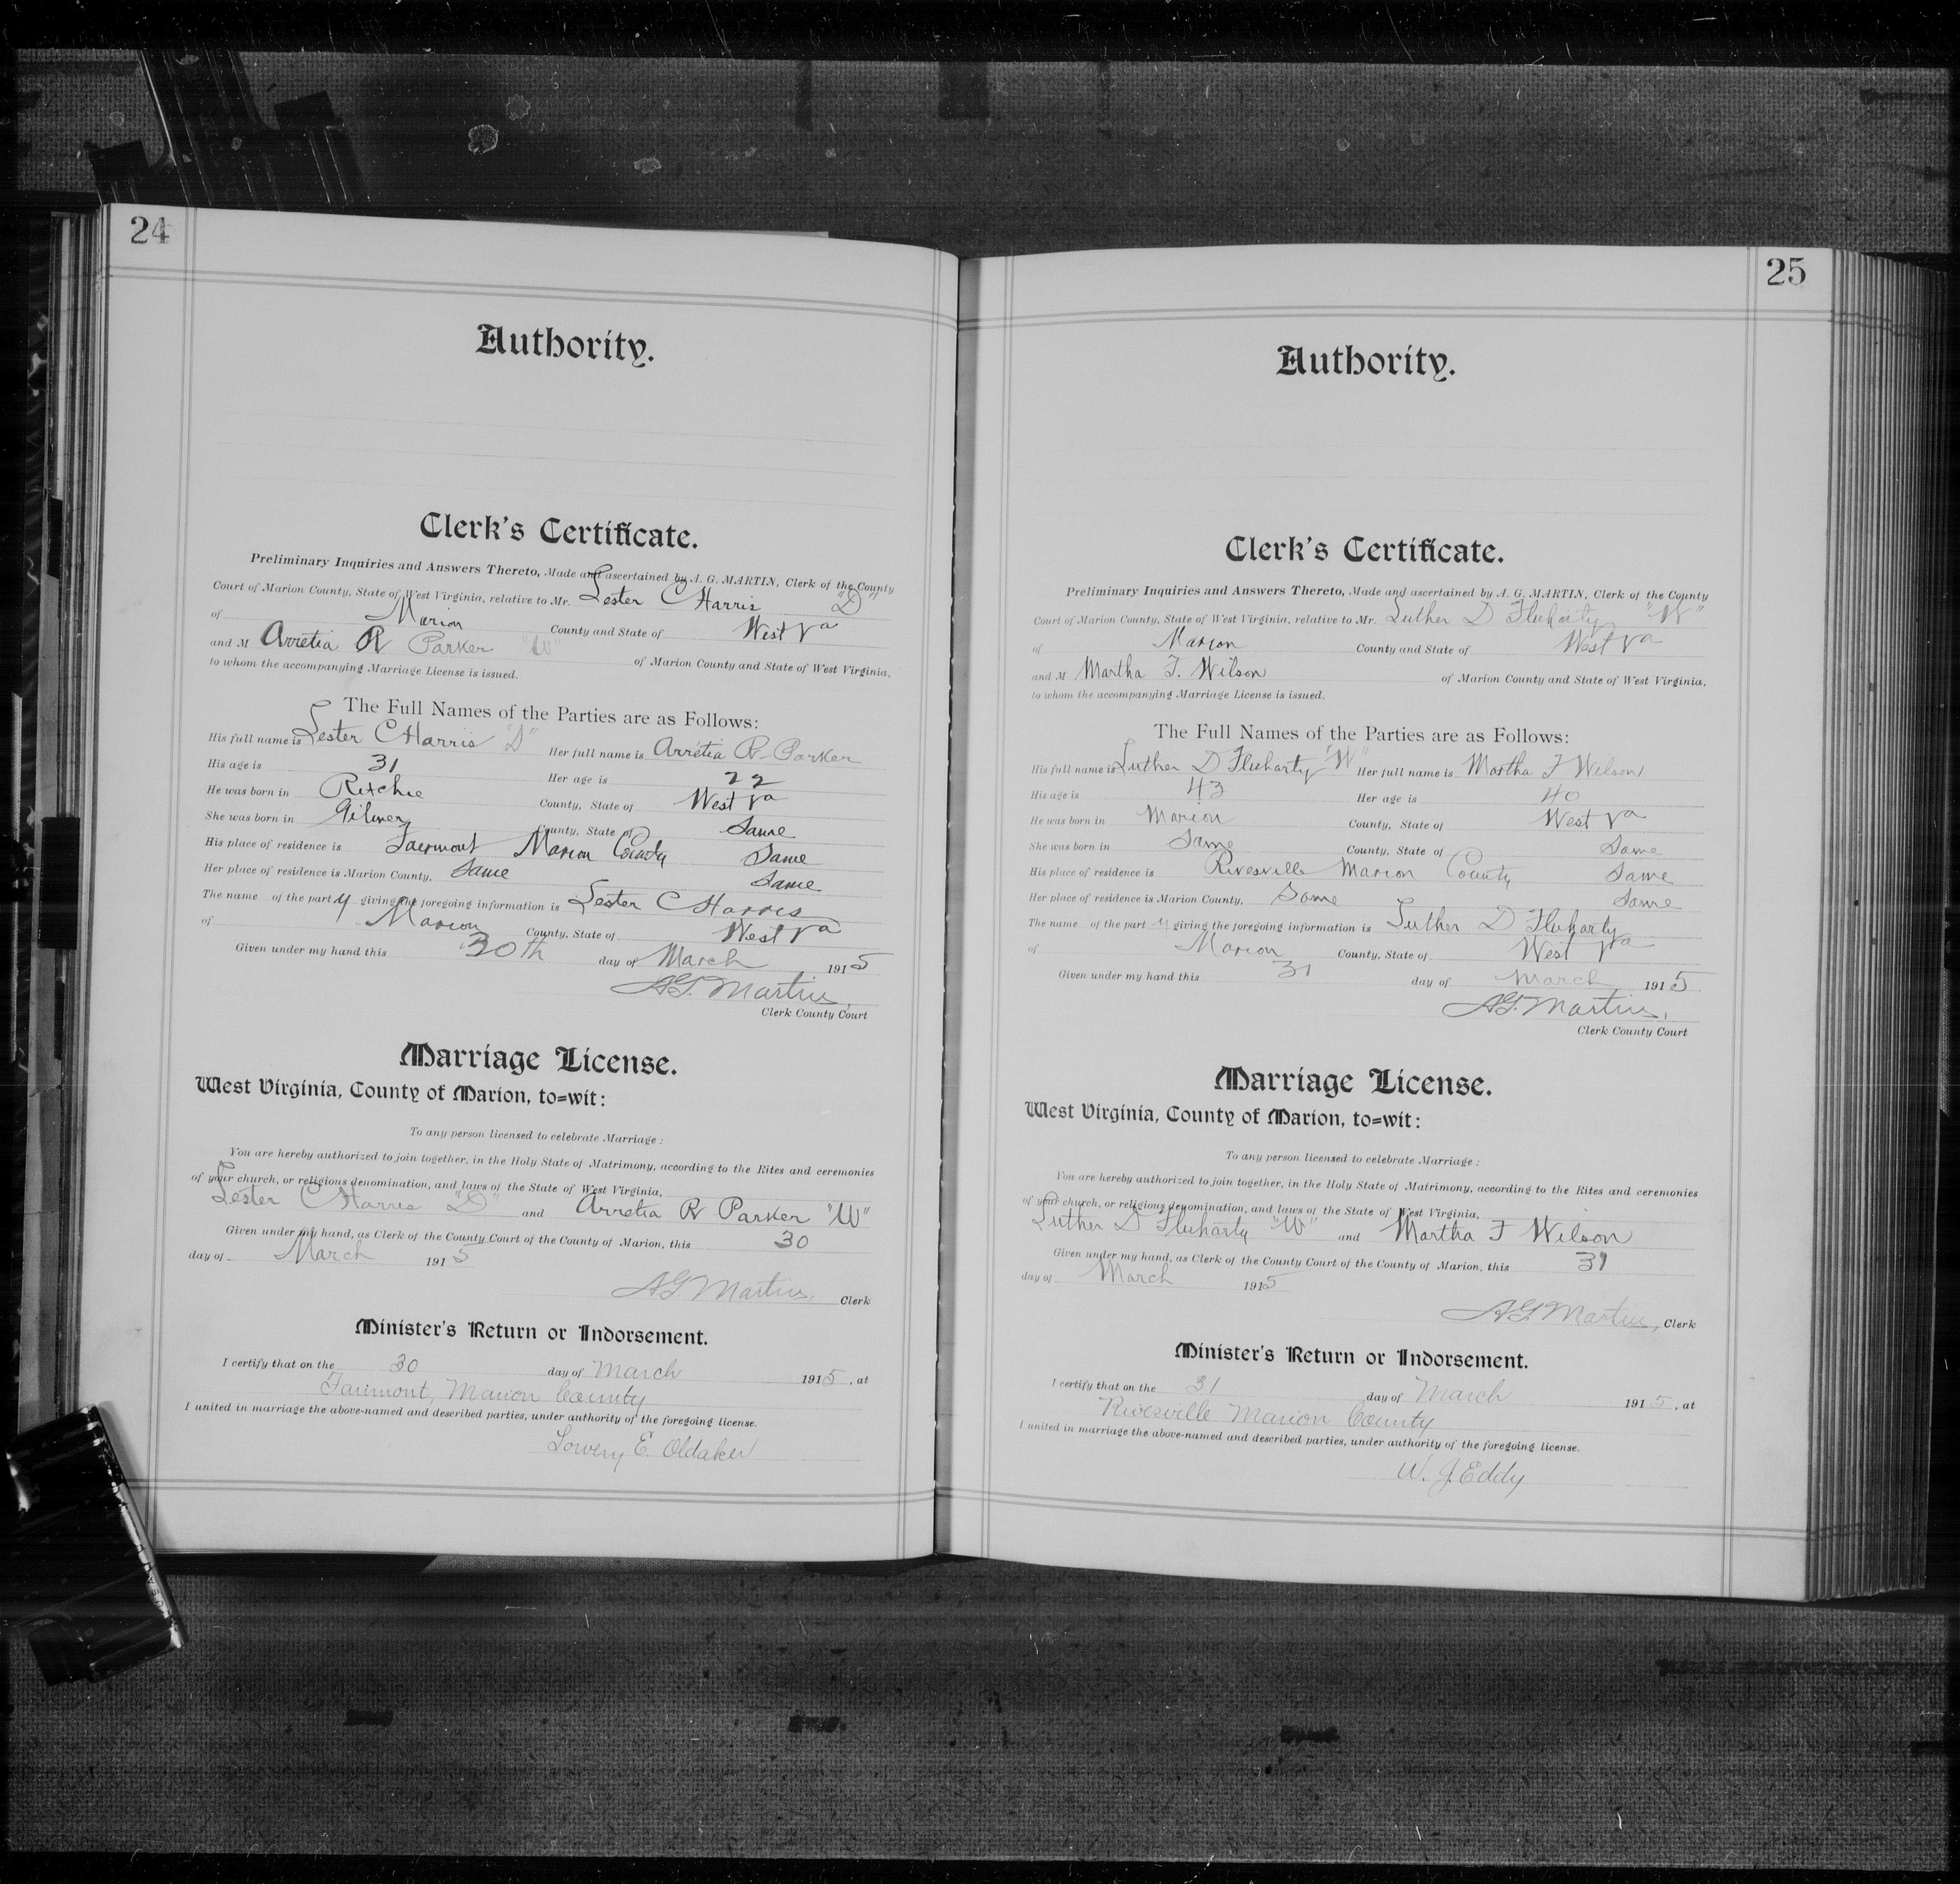 24
Authority.
Clerk's Certificate.
Preliminary Inquiries and Answers Thereto, Made and ascertained by A. G. MARTIN, Clerk of the County
Court of Marion County, State of West Virginia, relative to Mr. Lester C Harris "D"
of Marion County and State of West Va
and M Arretia R Parker "W" of Marion County and State of West Virginia,
to whom the accompanying Marriage License is issued.
The Full Names of the Parties are as Follows:
His full name is Lester C Harris "D" Her full name is Arretia R Parker
His age is 31 Her age is 22
He was born in Ritchie County, State of West Va
She was born in Gilmer County, State of Same
His place of residence is Fairmont Marion County Same
Her place of residence is Marion County, Same Same
The name of the party giving the foregoing information is Lester C Harris
of Marion County, State of West Va
Given under my hand this 30th day of March 1915
A.G. Martin,
Clerk County Court
Marriage License.
West Virginia, County of Marion, to=wit:
To any person licensed to celebrate Marriage:
You are hereby authorized to join together, in the Holy State of Matrimony, according to the Rites and ceremonies
of your church, or religious denomination, and laws of the State of West Virginia,
Lester C Harris "D" and Arretia R Parker "W"
Given under my hand, as Clerk of the County Court of the County of Marion, this 30
day of March 1915
A.G. Martin, Clerk
Minister's Return or Indorsement.
I certify that on the 30 day of March 1915, at
Fairmont, Marion County
I united in marriage the above-named and described parties, under authority of the foregoing license.
Lowery E. Oldaker
25
Authority.
Clerk's Certificate.
Preliminary Inquiries and Answers Thereto, Made and ascertained by A. G. MARTIN, Clerk of the County
Court of Marion County, State of West Virginia, relative to Mr. Luther D Fluharty "W"
of Marion County and State of West Va
and M Martha F. Wilson of Marion County and State of West Virginia,
to whom the accompanying Marriage License is issued.
The Full Names of the Parties are as Follows:
His full name is Luther D Fluharty "W" Her full name is Martha F Wilson
His age is 43 Her age is 40
He was born in Marion County, State of West Va
She was born in Same County, State of Same
His place of residence is Rivesville Marion County Same
Her place of residence is Marion County, Same Same
The name of the party giving the foregoing information is Luther D Fluharty
of Marion County, State of West Va
Given under my hand this 31 day of March 1915
A.G. Martin,
Clerk County Court
Marriage License.
West Virginia, County of Marion, to=wit:
To any person licensed to celebrate Marriage:
You are hereby authorized to join together, in the Holy State of Matrimony, according to the Rites and ceremonies
of your church, or religious denomination, and laws of the State of West Virginia,
Luther D Fluharty "W" and Martha F Wilson
Given under my hand, as Clerk of the County Court of the County of Marion, this 31
day of March 1915
A.G. Martin, Clerk
Minister's Return or Indorsement.
I certify that on the 31 day of March 1915, at
Rivesville Marion County
I united in marriage the above-named and described parties, under authority of the foregoing license.
W. J. Eddy